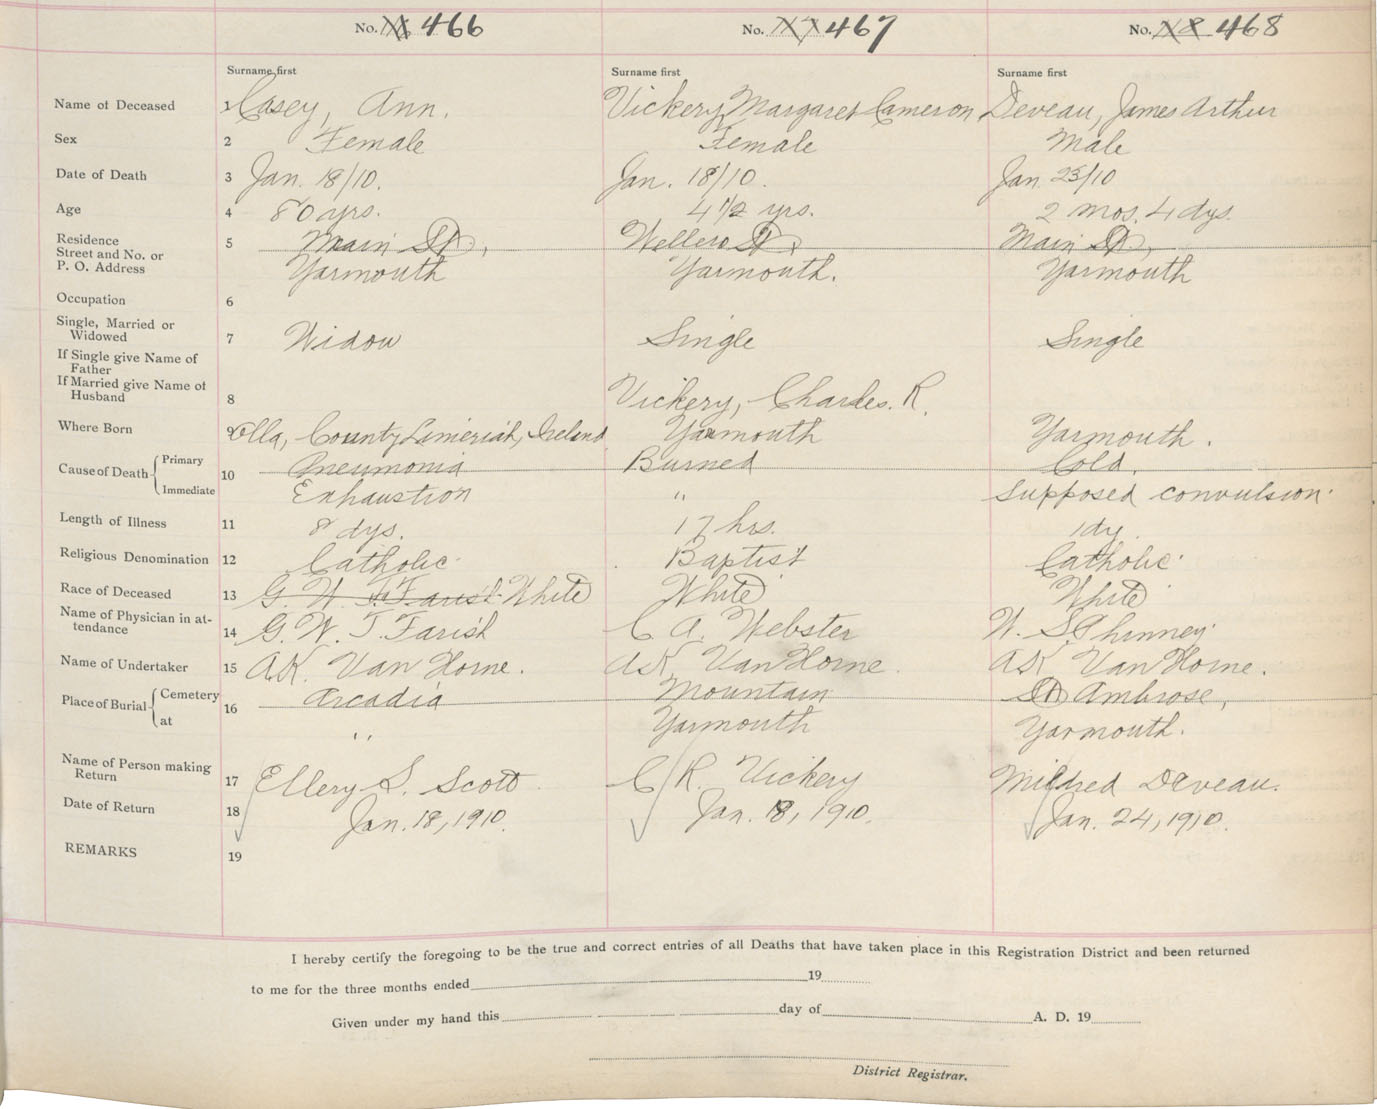 No. 466 No. 467 No. 468
Surname first Surname first Surname first
Name of Deceased 1 Casey, Ann. Vickery, Margaret Cameron Deveau, James Arthur
Sex 2 Female Female Male
Date of Death 3 Jan. 18/10. Jan. 18/10. Jan 23/10
Age 4 80 yrs. 4 1/2 yrs. 2 mos. 4 dys.
Residence 5 Main St, St, Main St,
Street and No. or
P. O. Address Yarmouth Yarmouth. Yarmouth
Occupation 6
Single, Married or
Widowed 7 Widow Single Single
If Single give Name of
Father
If Married give Name of
Husband 8 Vickery, Charles. R.
Where Born 9 Olla, County Limerick, Ireland Yarmouth Yarmouth.
Cause of Death Primary 10 Pneumonia Burned Cold.
Immediate Exhaustion " Supposed convulsion.
Length of Illness 11 8 dys. 17 hrs. 1 dy.
Religious Denomination 12 Catholic. Baptist Catholic.
Race of Deceased 13 G. W. T. Farish White White White
Name of Physician in at-
tendance 14 G. W. T. Farish C A. Webster W. S. Phinney.
Name of Undertaker 15 A K. Van Horne. A K. Van Horne. A K Van Horne.
Place of Burial Cemetery 16 Arcadia Mountain St Ambrose,
at " Yarmouth Yarmouth.
Name of Person making
Return 17 Ellery S. Scott C. R. Vickery Mildred Deveau.
Date of Return 18 Jan. 18, 1910. Jan. 18, 1910. Jan. 24, 1910.
REMARKS 19
I hereby certify the foregoing to be the true and correct entries of all Deaths that have taken place in this Registration District and been returned
to me for the three months ended 19
Given under my hand this day of A. D. 19
District Registrar.